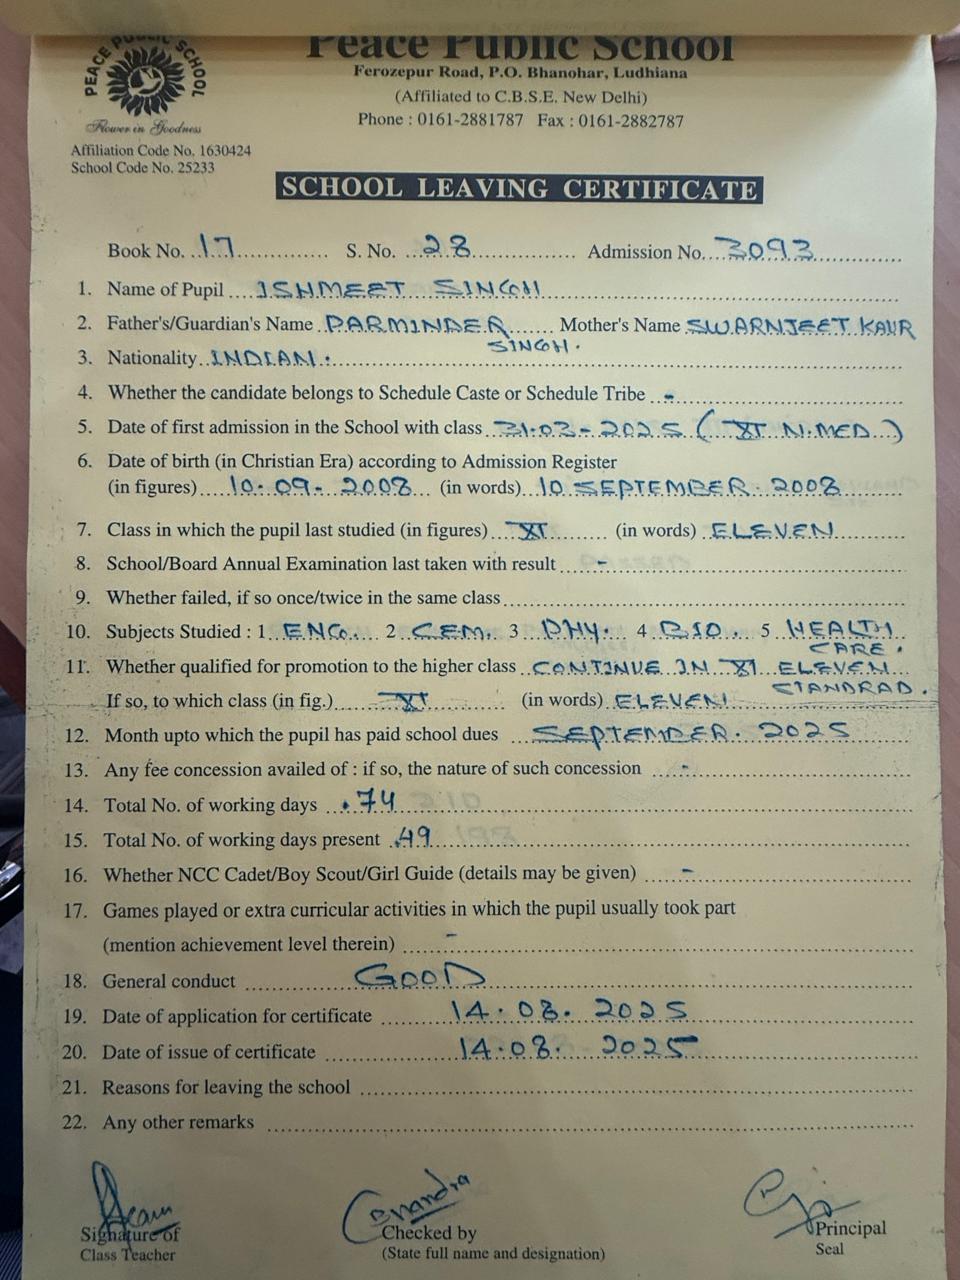 PEACE PUBLIC SCHOOL
Flower in Goodness
Peace Public School
Ferozepur Road, P.O. Bhanohar, Ludhiana
(Affiliated to C.B.S.E. New Delhi)
Phone : 0161-2881787 Fax : 0161-2882787
Affiliation Code No. 1630424
School Code No. 25233
SCHOOL LEAVING CERTIFICATE
Book No. 17 S. No. 28 Admission No. 3093
1. Name of Pupil ISHMEET SINGH
2. Father's/Guardian's Name PARMINDER SINGH. Mother's Name SWARNJEET KAUR
3. Nationality INDIAN.
4. Whether the candidate belongs to Schedule Caste or Schedule Tribe -
5. Date of first admission in the School with class 31.03-2025 (XI N.MED.)
6. Date of birth (in Christian Era) according to Admission Register
(in figures) 10.09-2008 (in words) 10 SEPTEMBER. 2008
7. Class in which the pupil last studied (in figures) XI (in words) ELEVEN
8. School/Board Annual Examination last taken with result -
9. Whether failed, if so once/twice in the same class
10. Subjects Studied : 1 ENG. 2 CEM. 3 PHY. 4 BIO. 5 HEALTH CARE.
11. Whether qualified for promotion to the higher class CONTINUE IN XI ELEVEN STANDRAD.
If so, to which class (in fig.) XI (in words) ELEVEN
12. Month upto which the pupil has paid school dues SEPTEMBER. 2025
13. Any fee concession availed of : if so, the nature of such concession -
14. Total No. of working days 74
15. Total No. of working days present 49
16. Whether NCC Cadet/Boy Scout/Girl Guide (details may be given) -
17. Games played or extra curricular activities in which the pupil usually took part
(mention achievement level therein) -
18. General conduct GOOD
19. Date of application for certificate 14.08.2025
20. Date of issue of certificate 14.08.2025
21. Reasons for leaving the school
22. Any other remarks
Signature of Checked by Principal
Class Teacher (State full name and designation) Seal